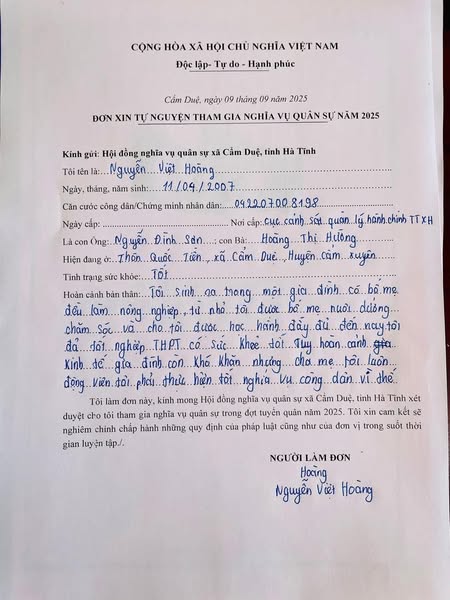 CỘNG HÒA XÃ HỘI CHỦ NGHĨA VIỆT NAM
Độc lập- Tự do - Hạnh phúc
Cẩm Duệ, ngày 09 tháng 09 năm 2025
ĐƠN XIN TỰ NGUYỆN THAM GIA NGHĨA VỤ QUÂN SỰ NĂM 2025
Kính gửi: Hội đồng nghĩa vụ quân sự xã Cẩm Duệ, tỉnh Hà Tĩnh
Tôi tên là: Nguyễn Việt Hoàng
Ngày, tháng, năm sinh: 11/04/2007
Căn cước công dân/Chứng minh nhân dân: 042207008198
Ngày cấp: Nơi cấp: cục cảnh sát quản lý hành chính TTXH
Là con Ông: Nguyễn Đình Sơn con Bà: Hoàng Thị Hường
Hiện đang ở: Thôn Quốc Tiến, xã Cẩm Duệ, Huyện cẩm xuyên
Tình trạng sức khỏe: Tốt
Hoàn cảnh bản thân: Tôi sinh ra trong một gia đình có bố mẹ
đều làm nông nghiệp, từ nhỏ tôi được bố mẹ nuôi dưỡng
chăm sóc và cho tôi được học hành đầy đủ đến nay tôi
đã tốt nghiệp THPT có sức khỏe tốt. Tuy hoàn cảnh
kinh tế gia đình còn khó khăn nhưng cha mẹ tôi luôn
động viên tôi phải thực hiện tốt nghĩa vụ công dân vì thế
Tôi làm đơn này, kính mong Hội đồng nghĩa vụ quân sự xã Cẩm Duệ, tỉnh Hà Tĩnh xét
duyệt cho tôi tham gia nghĩa vụ quân sự trong đợt tuyển quân năm 2025. Tôi xin cam kết sẽ
nghiêm chỉnh chấp hành những quy định của pháp luật cũng như của đơn vị trong suốt thời
gian luyện tập./.
NGƯỜI LÀM ĐƠN
Hoàng
Nguyễn Việt Hoàng